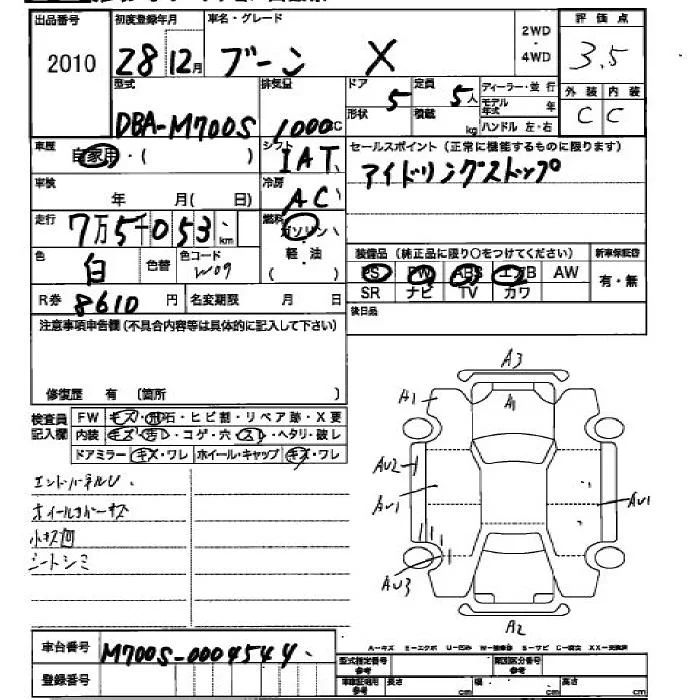 出品番号 初度登録年月 車名・グレード 2WD・4WD 評価点
2010 28 12月 ブーン X 3.5
型式 排気量 ドア 定員 ディーラー・並行 外装 内装
DBA-M700S 1000cc 5 5人 モデル年式 年 C C
形状 積載 kg ハンドル 左・右
車歴 自家用・( ) シフト IAT セールスポイント(正常に機能するものに限ります)
アイドリングストップ
車検 年 月( 日) 冷房 AC
走行 7万5千053km 燃料 ガソリン・軽油 ( )
色 白 色替 色コード W09
装備品(純正品に限り○をつけてください) 新車保証書
PS PW ABS エアB AW 有・無
SR ナビ TV カワ
R券 8610円 名変期限 月 日 後日品
注意事項申告欄(不具合内容等は具体的に記入して下さい)
修復歴 有 〔箇所 〕
検査員記入欄 FW キズ・飛石・ヒビ割・リペア跡・X要
内装 キズ・汚れ・コゲ・穴・スレ・ヘタリ・破レ
ドアミラー キズ・ワレ ホイール・キャップ キズ・ワレ
エンドパーネルU.
ホイールカバーキズ
小キズ有
シートシミ
A3
A1 A1
AU2
AU1 AU1
AU3
A2
車台番号 M700S-0004544
登録番号
A-キズ E-エクボ U-凹み W-補修跡 S-サビ C-腐食 XX-交換済
型式指定番号 参考 類別区分番号 参考
車庫証明用 参考 長さ cm 幅 cm 高さ cm